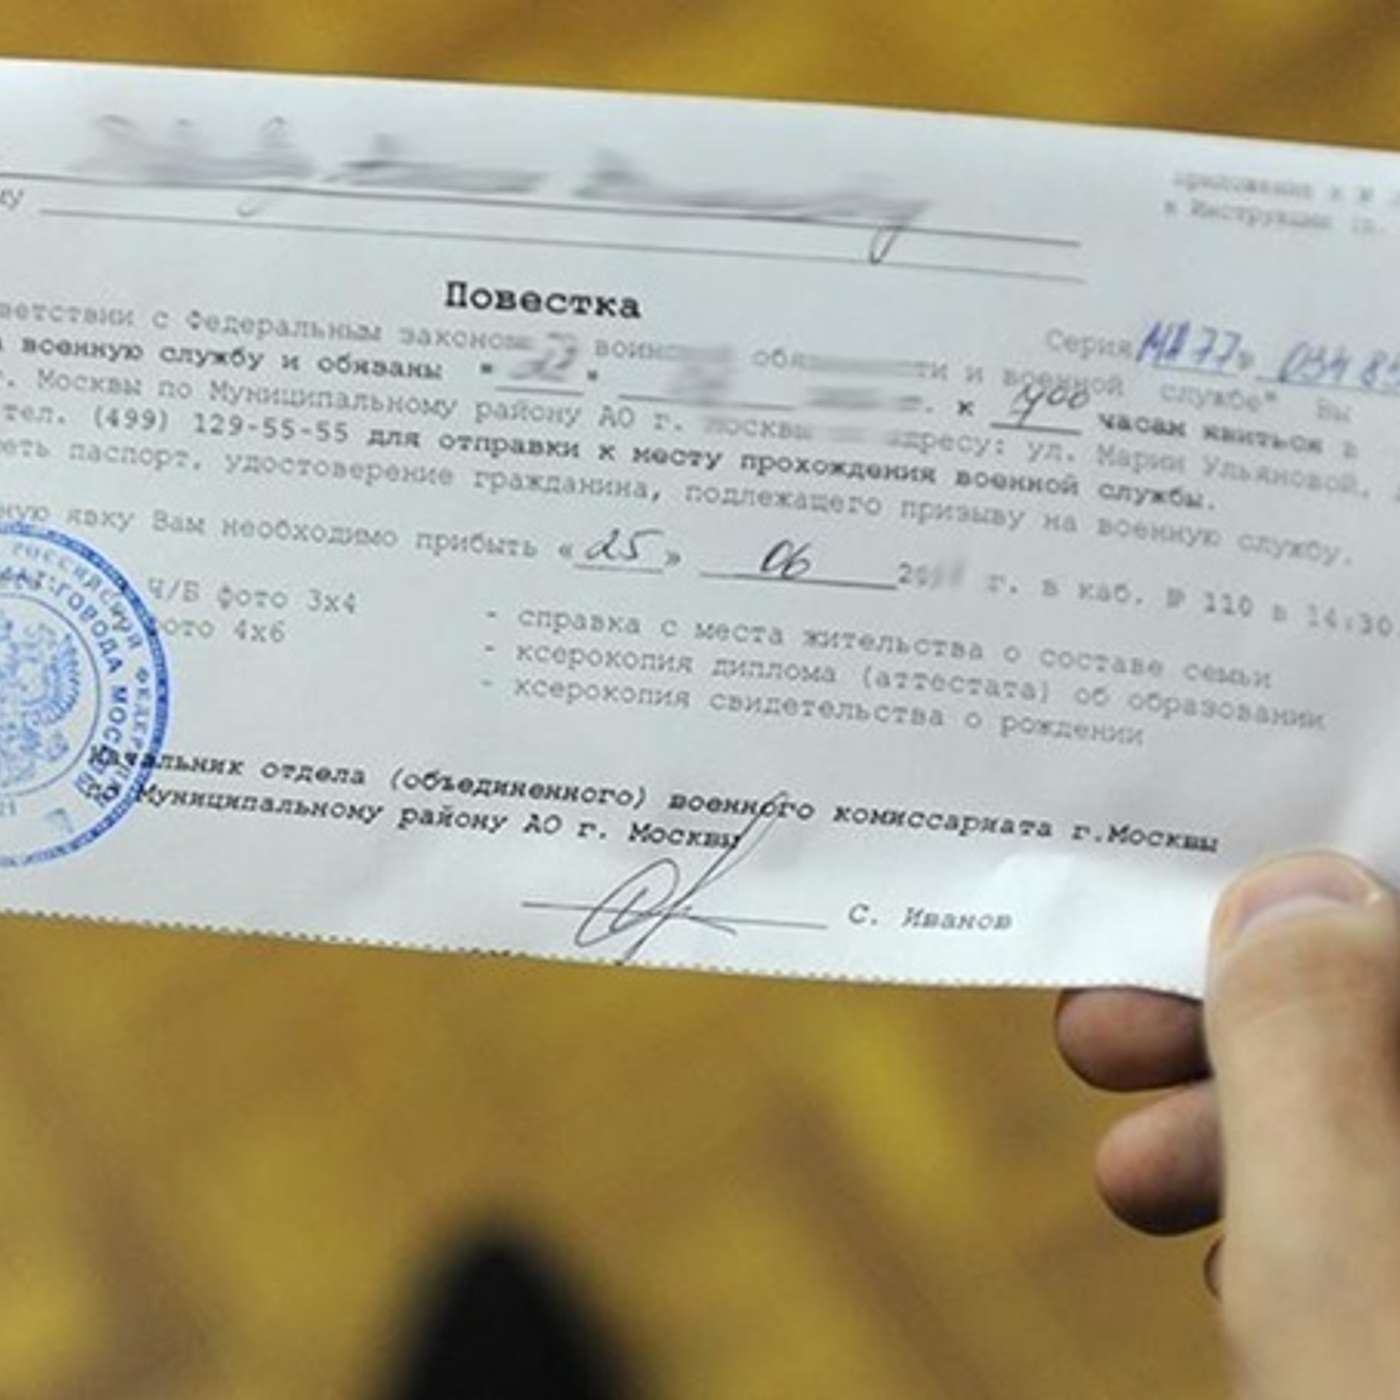 Приложение к №
к Инструкции (п.
му
Повестка
Серия МД 77 № 034 85
ветствии с Федеральным законом воинской обязанности и военной службе" Вы
военную службу и обязаны " 22 " г. к 1900 часам явиться в
г. Москвы по Муниципальному району АО г. Москвы по адресу: ул. Марии Ульяновой,
тел. (499) 129-55-55 для отправки к месту прохождения военной службы.
еть паспорт, удостоверение гражданина, подлежащего призыву на военную службу.
ную явку Вам необходимо прибыть «25» 06 г. в каб. № 110 в 14:30
Ч/Б фото 3x4
фото 4x6
- справка с места жительства о составе семьи
- ксерокопия диплома (аттестата) об образовании
- ксерокопия свидетельства о рождении
РОССИЙСКОЙ ФЕДЕР
ГОРОДА МОСК
Начальник отдела (объединенного) военного комиссариата г.Москвы
по Муниципальному району АО г. Москвы
С. Иванов